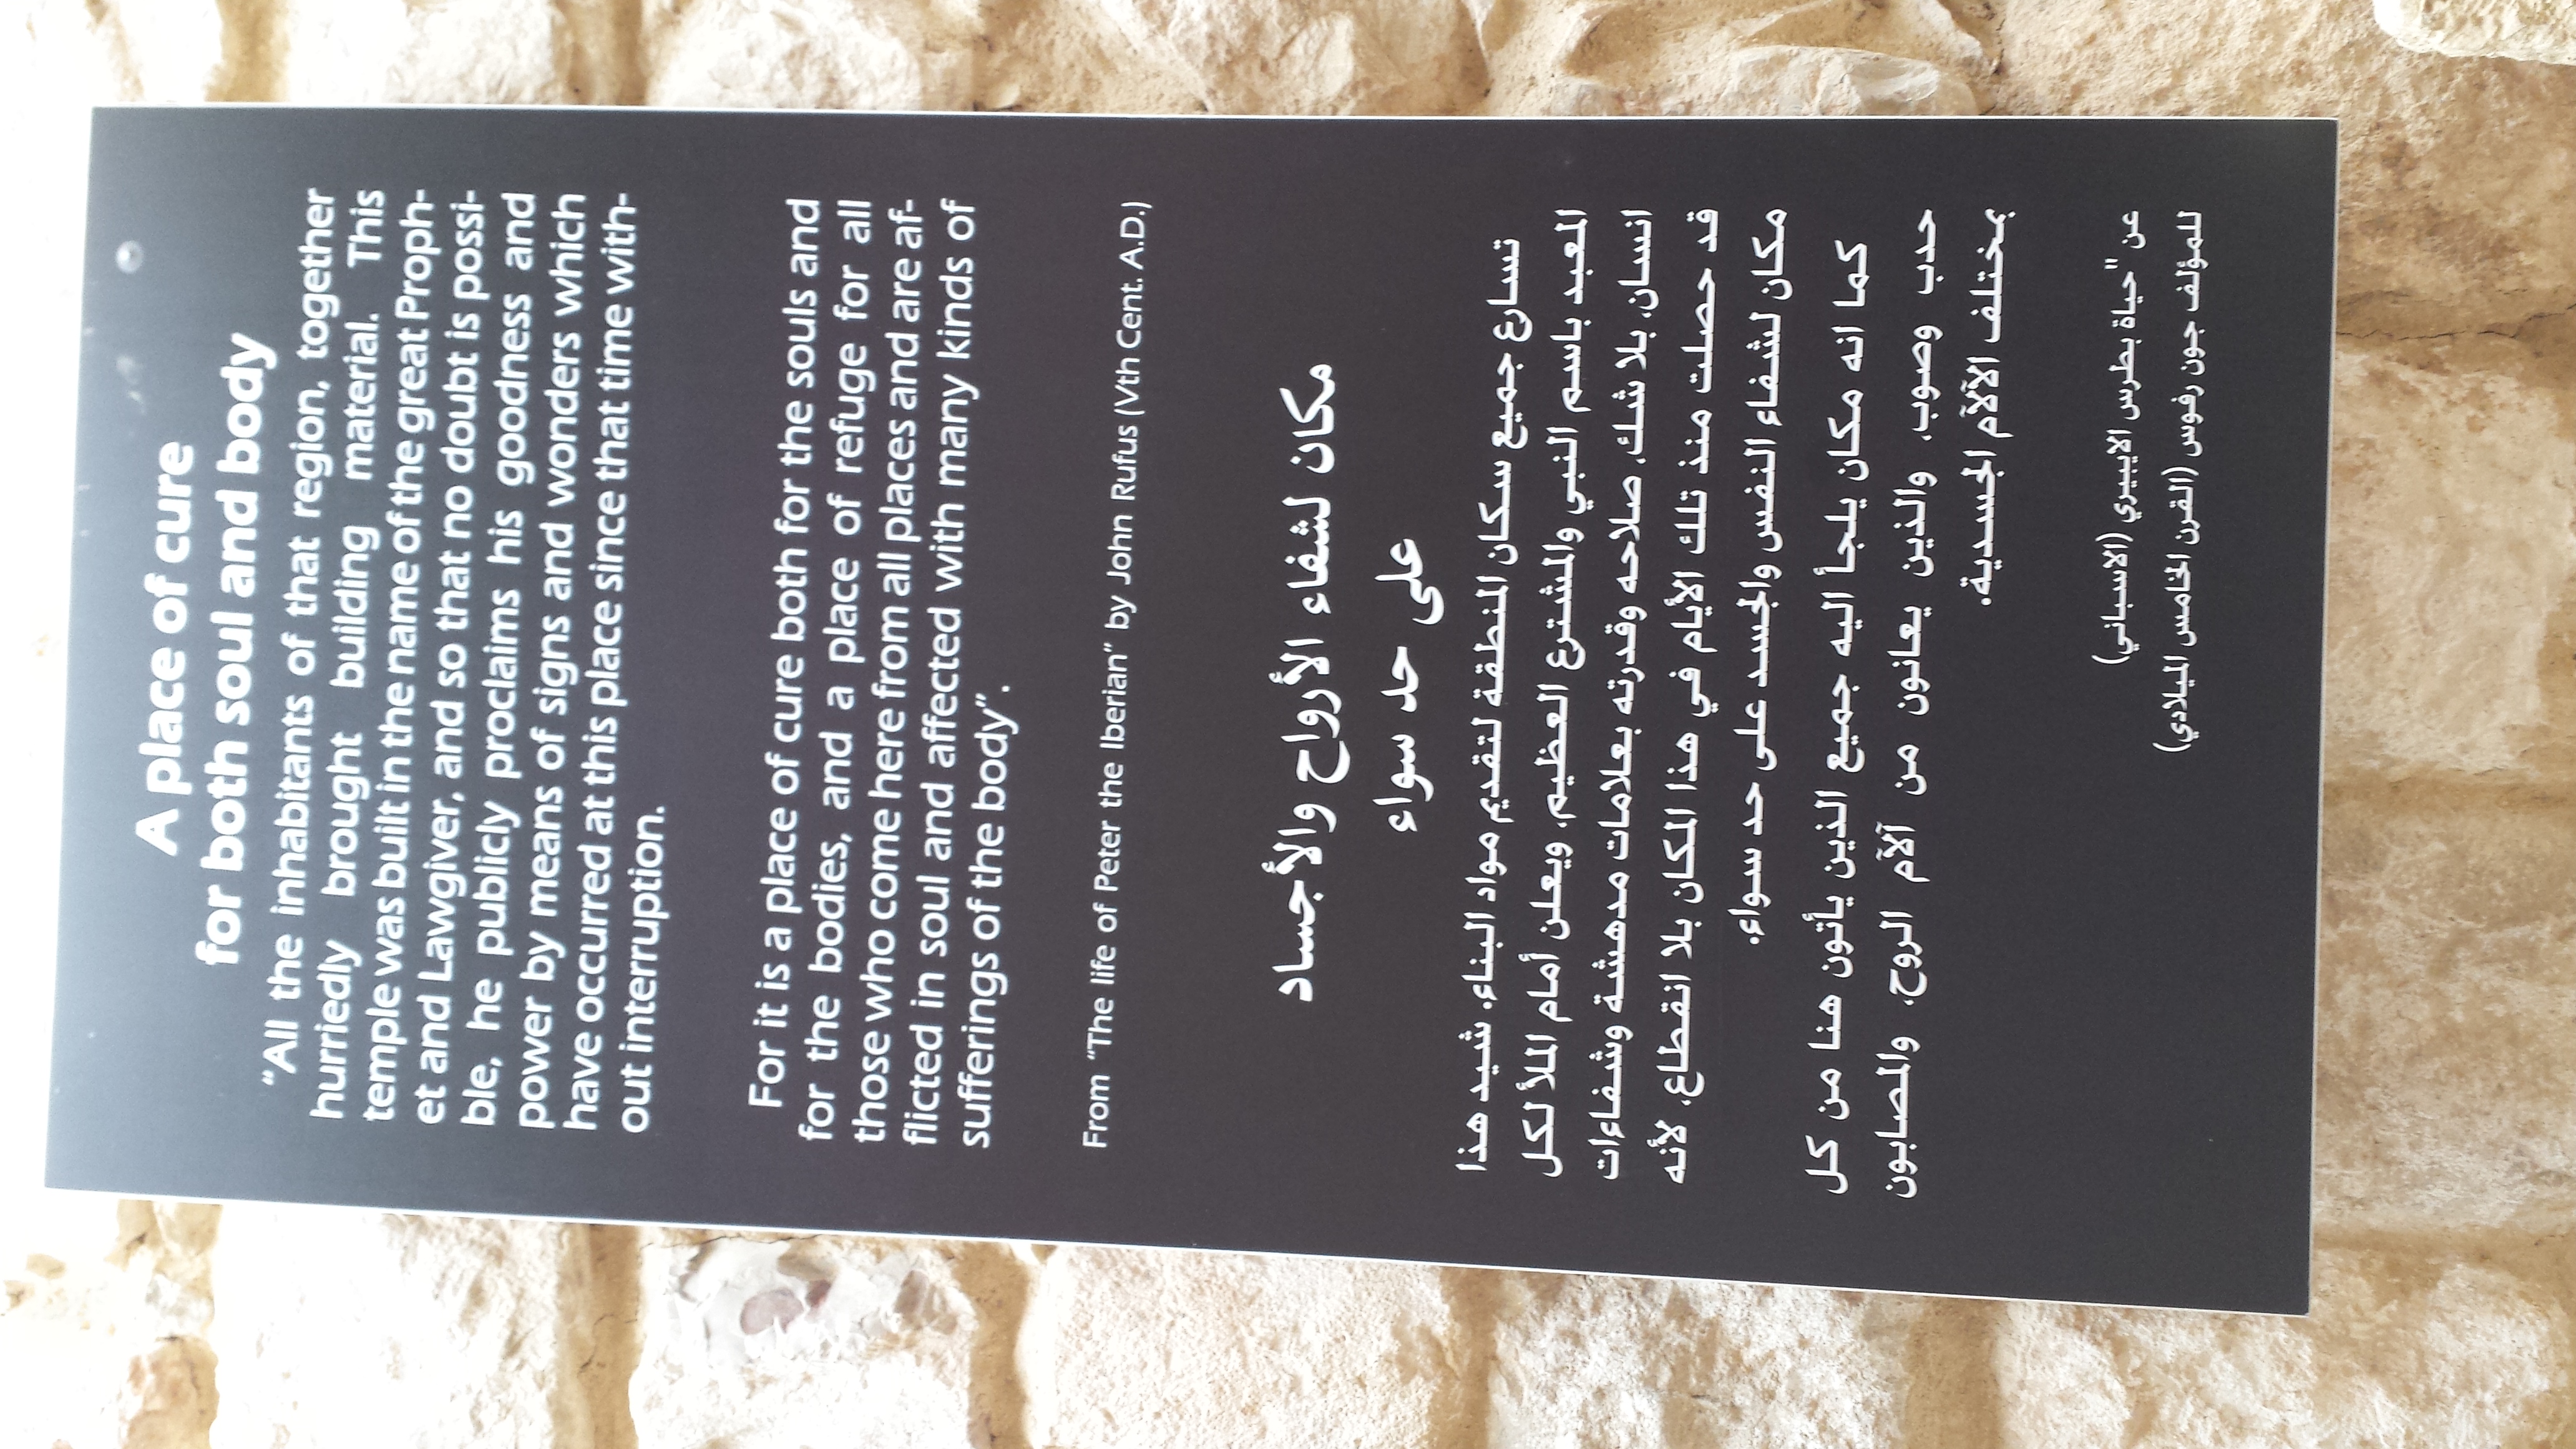 A place of cure
for both soul and body
“All the inhabitants of that region, together
hurriedly brought building material. This
temple was built in the name of the great Proph-
et and Lawgiver, and so that no doubt is possi-
ble, he publicly proclaims his goodness and
power by means of signs and wonders which
have occurred at this place since that time with-
out interruption.
For it is a place of cure both for the souls and
for the bodies, and a place of refuge for all
those who come here from all places and are af-
flicted in soul and affected with many kinds of
sufferings of the body”.
From “The life of Peter the Iberian” by John Rufus (Vth Cent. A.D.)
مكان لشفاء الأرواح والأجساد
على حد سواء
تسارع جميع سكان المنطقة لتقديم مواد البناء. شيد هذا
المعبد باسم النبي والمشترع العظيم، ويعلن أمام الملأ لكل
انسان، بلا شك، صلاحه وقدرته بعلامات مدهشة وشفاءات
قد حصلت منذ تلك الأيام في هذا المكان بلا انقطاع، لأنه
مكان لشفاء النفس والجسد على حد سواء.
كما انه مكان يلجأ اليه جميع الذين يأتون هنا من كل
حدب وصوب، والذين يعانون من آلآم الروح، والمصابون
بمختلف الآلآم الجسدية.
عن "حياة بطرس الايبيري (الاسباني)
للمؤلف جون رفوس (القرن الخامس الميلادي)